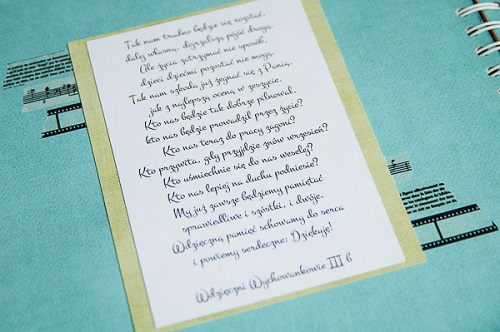 Tak nam trudno będzie się rozstać,
dalej własną, dojrzalszą pójść drogą.
Ale życia zatrzymać nie sposób,
dzieci dziećmi pozostać nie mogą.
Tak nam szkoda już żegnać się z Panią,
jak z najlepszą oceną w zeszycie.
Kto nas będzie tak dobrze pilnował,
kto nas będzie prowadził przez życie?
Kto nas teraz do pracy zagoni?
Kto przywita, gdy przyjdzie znów wrzesień?
Kto uśmiechnie się do nas wesoło?
Kto nas lepiej na duchu podniesie?
My już zawsze będziemy pamiętać
sprawiedliwie i szóstki, i dwóje.
Wdzięczną pamięć schowamy do serca
i powiemy serdeczne: Dziękuję!
Wdzięczni Wychowankowie III b